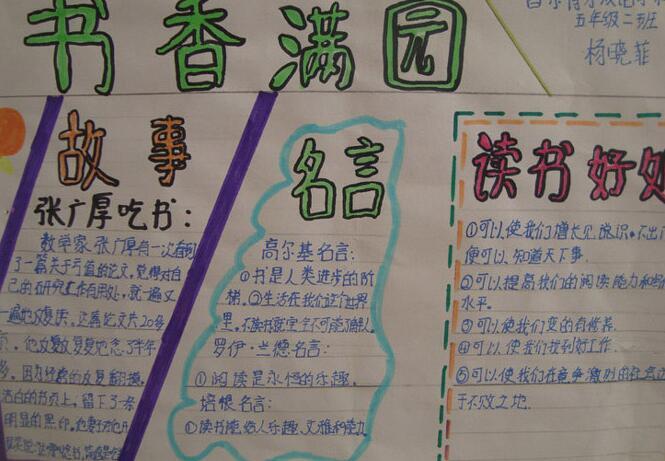 书香满园
五年级二班
杨晓菲
故事
张广厚吃书：
数学家张广厚有一次看到
了一篇关于亏值的论文，觉得对自
己的研究工作有用处，就一遍又
一遍地反复读。这篇论文共20多
页，他反复反复地念了半年
多。因为经常的反复翻摸，
洁白的书页上，留下了一条
明显的黑印。他妻子
名言
高尔基名言：
①书是人类进步的阶
梯。②生活在我们这个世界
里，不读书就完全不可能了解人
罗伊·兰德名言：
①阅读是永恒的乐趣。
培根名言：
①读书能给人乐趣、文雅和能力
读书好处
①可以使我们增长见识。不出门
便可以知道天下事.
②可以提高我们的阅读能力和
水平。
③可以使我们变的有修养.
④可以使我们找到好工作.
⑤可以使我们在竞争激烈的社会
于不败之地.